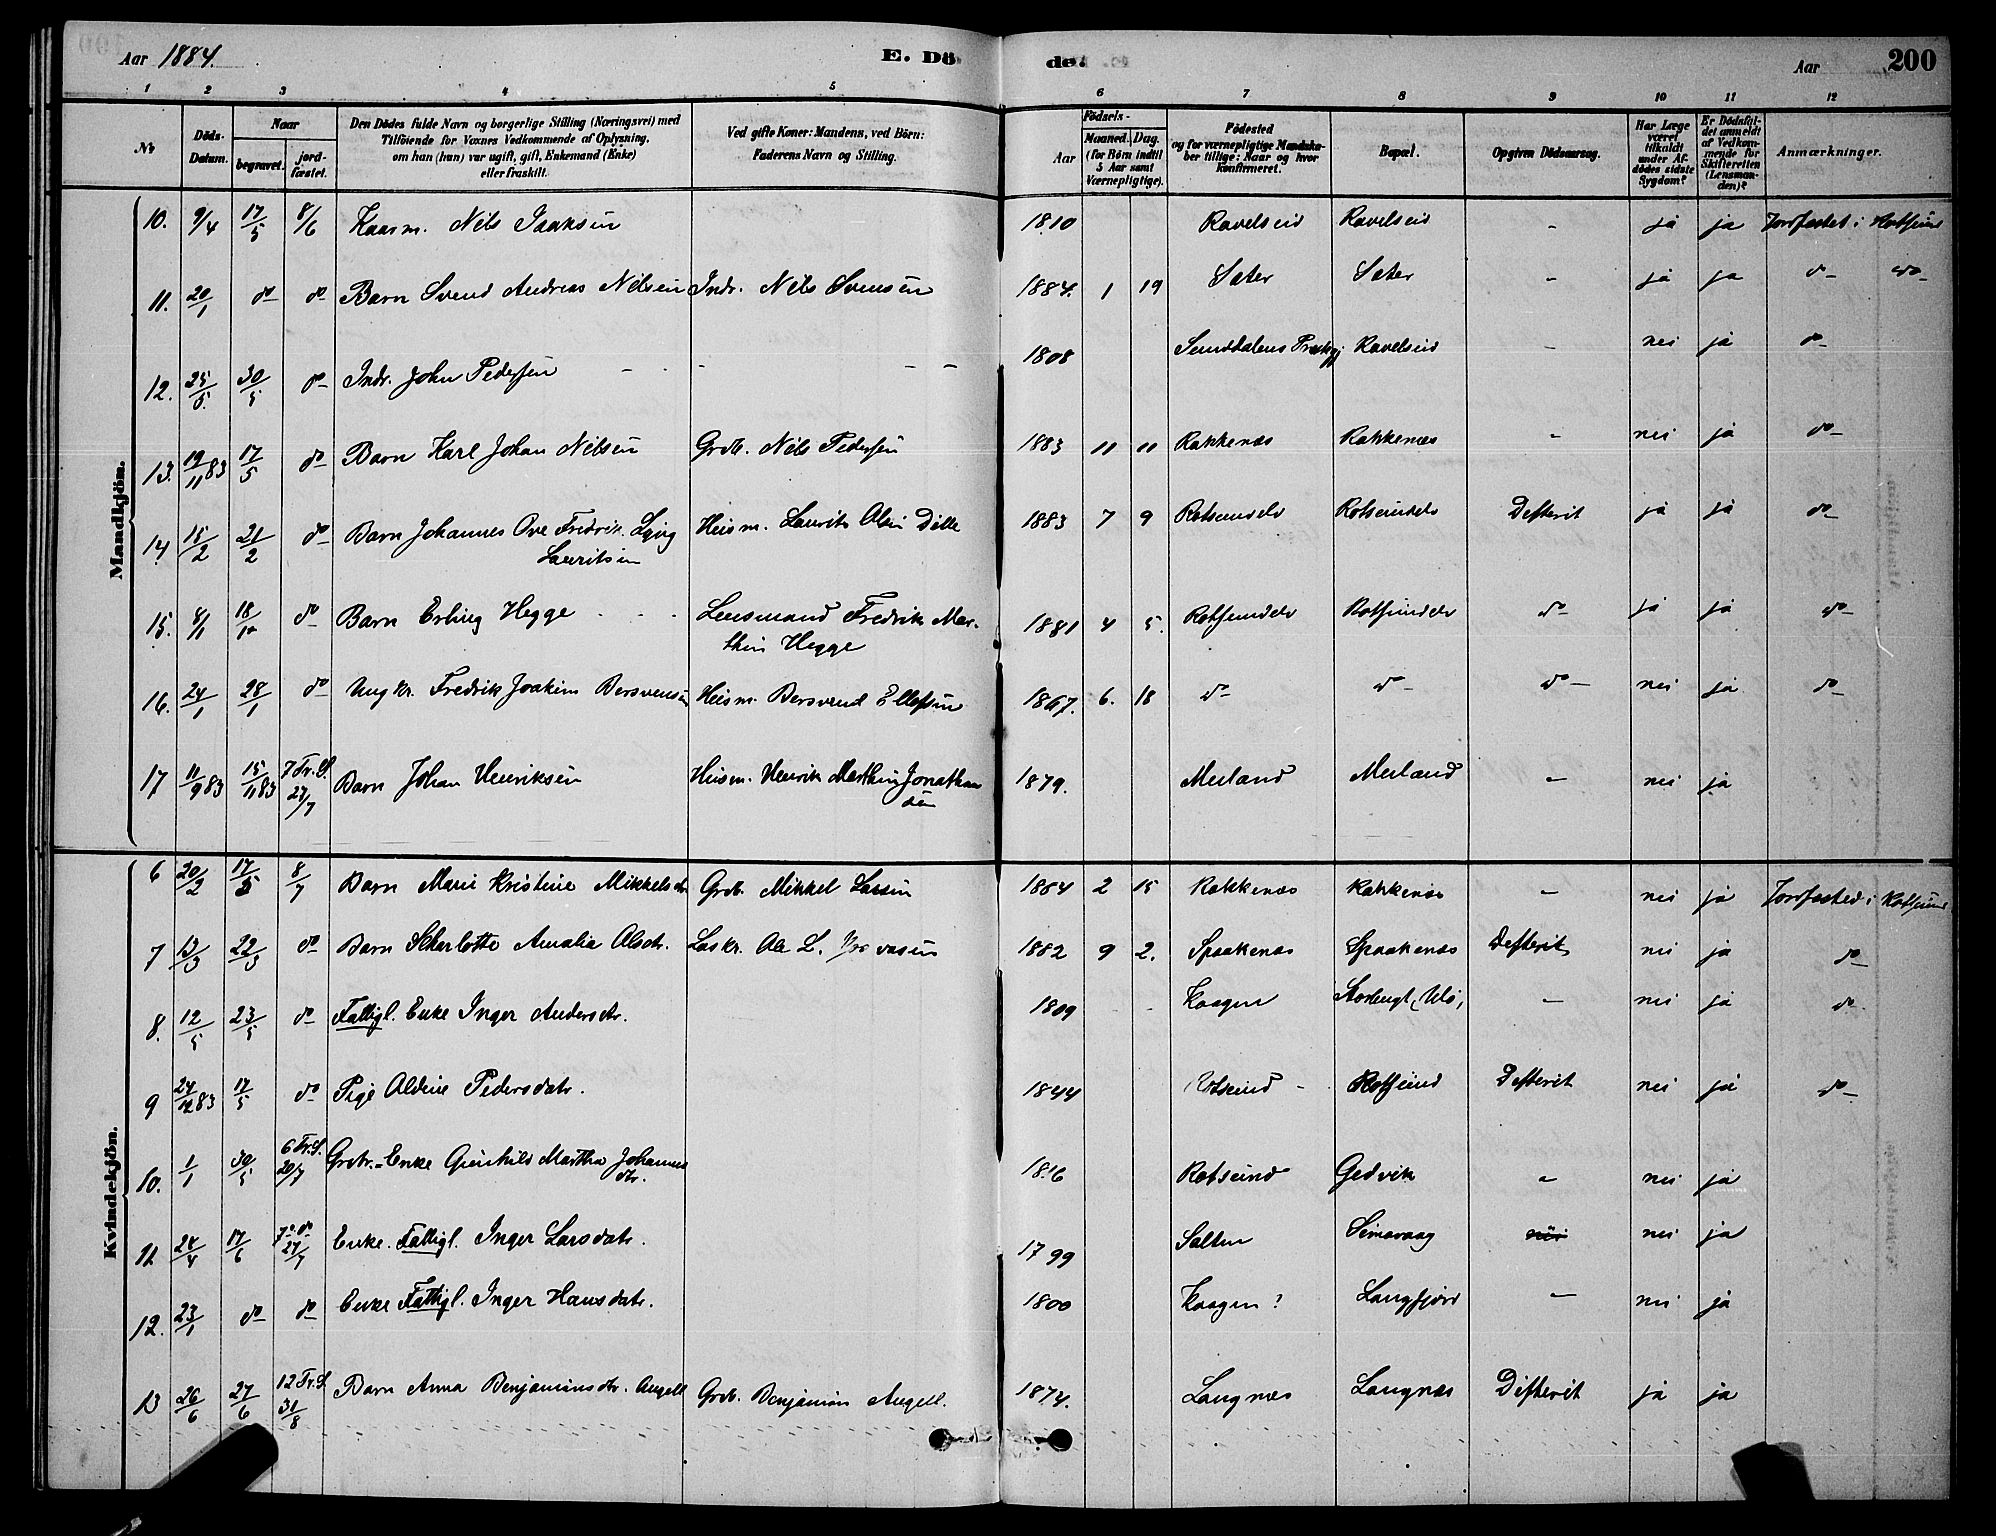 Aar 1884. E. Döde. Aar 200
1 2 3 4 5 6 7 8 9 10 11 12
No
Döds-Datum.
Naar
begravet.
jord-fæstet.
Den Dödes fulde Navn og borgerlige Stilling (Næringsvei) med
Tilföiende for Voxnes Vedkommende af Oplysning,
om han (hun) var ugift, gift, Enkemand (Enke)
eller fraskilt.
Ved gifte Koner: Mandens, ved Börn:
Faderens Navn og Stilling.
Födsels-
Aar
Maaned. Dag.
(for Börn indtil
5 Aar samt
Værnepligtige).
Födested
og for værnepligtige Mandska-
ber tillige: Naar og hvor
konfirmeret.
Bopæl.
Opgiven Dödsaarsag.
Har Læge
været
tilkaldt
under Af-
dödes sidste
Sygdom?
Er Dödsfal-
det anmeldt
af Vedkom-
mende for
Skifteretten
(Lensman-
den)?
Anmærkninger.
Mandkjön.
10. 9/4 17/5 8/6 Kaarm. Nils Isaksen 1810 Ravelseid Ravelseid - ja ja Jordfæstet i Rotsund
11. 20/1 do do Barn Svend Andreas Nilsen Indr. Nils Svensen 1884. 1 19 Sæter Sæter - ja ja do do
12. 25/5 30/5 do Indr. John Pedersen - - - - 1808 Sunddalens Præstgj Ravelseid - nei ja do
13. 19/11 83 17/5 do Barn Karl Johan Nilsen Grdb. Nils Pedersen 1883 11 11 Rakkenæs Rakkenæs - nei ja do
14. 15/2 21/2 do Barn Johannes Ove Fredrik
Lauritsen Husm. Laurits Olsen 1883 7 9 Rotsundelv Rotsundelv Defterit ja ja do
15. 8/1 18/10 do Barn Erling Hegge - - - Lensmand Fredrik Mar-
thin Hegge 1881 4 5. Rotsundelv Rotsundelv do ja ja do
16. 24/1 28/1 do Ungkr. Fredrik Joakim Bersvensen Husm. Bersvend Ellefsen 1867. 6. 18 do do do nei ja do
17 11/9 83 15/11 83 7 Tr. S. 27/7 Barn Johan Henriksen Husm. Henrik Marthin Jonathan
sen 1879. Meiland Meiland - nei ja
Kvindekjön.
6 20/2 17/5 8/7 Barn Marie Kristine Mikkelsdtr Grdb. Mikkel Larsen 1884 2 15 Rakkenæs Rakkenæs - nei ja Jordfæsted i Rotsund
7 13/3 22/3 do Barn Scharlotte Amalie Olsdtr. Løskr. Ole L. 1882 9 2. Spaakenæs Spaakenæs Defterit nei ja do
8. 12/5 23/5 do Fattigl. Enke Inger Andersdtr. 1809 - - Kaagen - nei ja do
9 24/12 83 17/5 do Pige Aldine Pedersdatr. 1844 Rotsund - Rotsund Defterit nei ja do
10. 1/1 30/5 6 Tr. S. 20/7 Grdbr.-Enke Gunhild Martha Johannes
dtr. 1816 Rotsund Gedvik - nei ja
11. 24/4 17/6 7 do 27/7 Enke. Fattigl. Inger Larsdatr. 1799 Salten nei nei ja
12. 23/1 do do Enke Fattigl. Inger Hansdatr. 1800 Kaagen? Langfjord - nei ja
13 26/6 27/6 12 Tr. S. 31/8 Barn Anna Benjaminsdtr. Angell Grdb. Benjamin Angell. 1874. Langnæs Langnæs Difterit ja ja